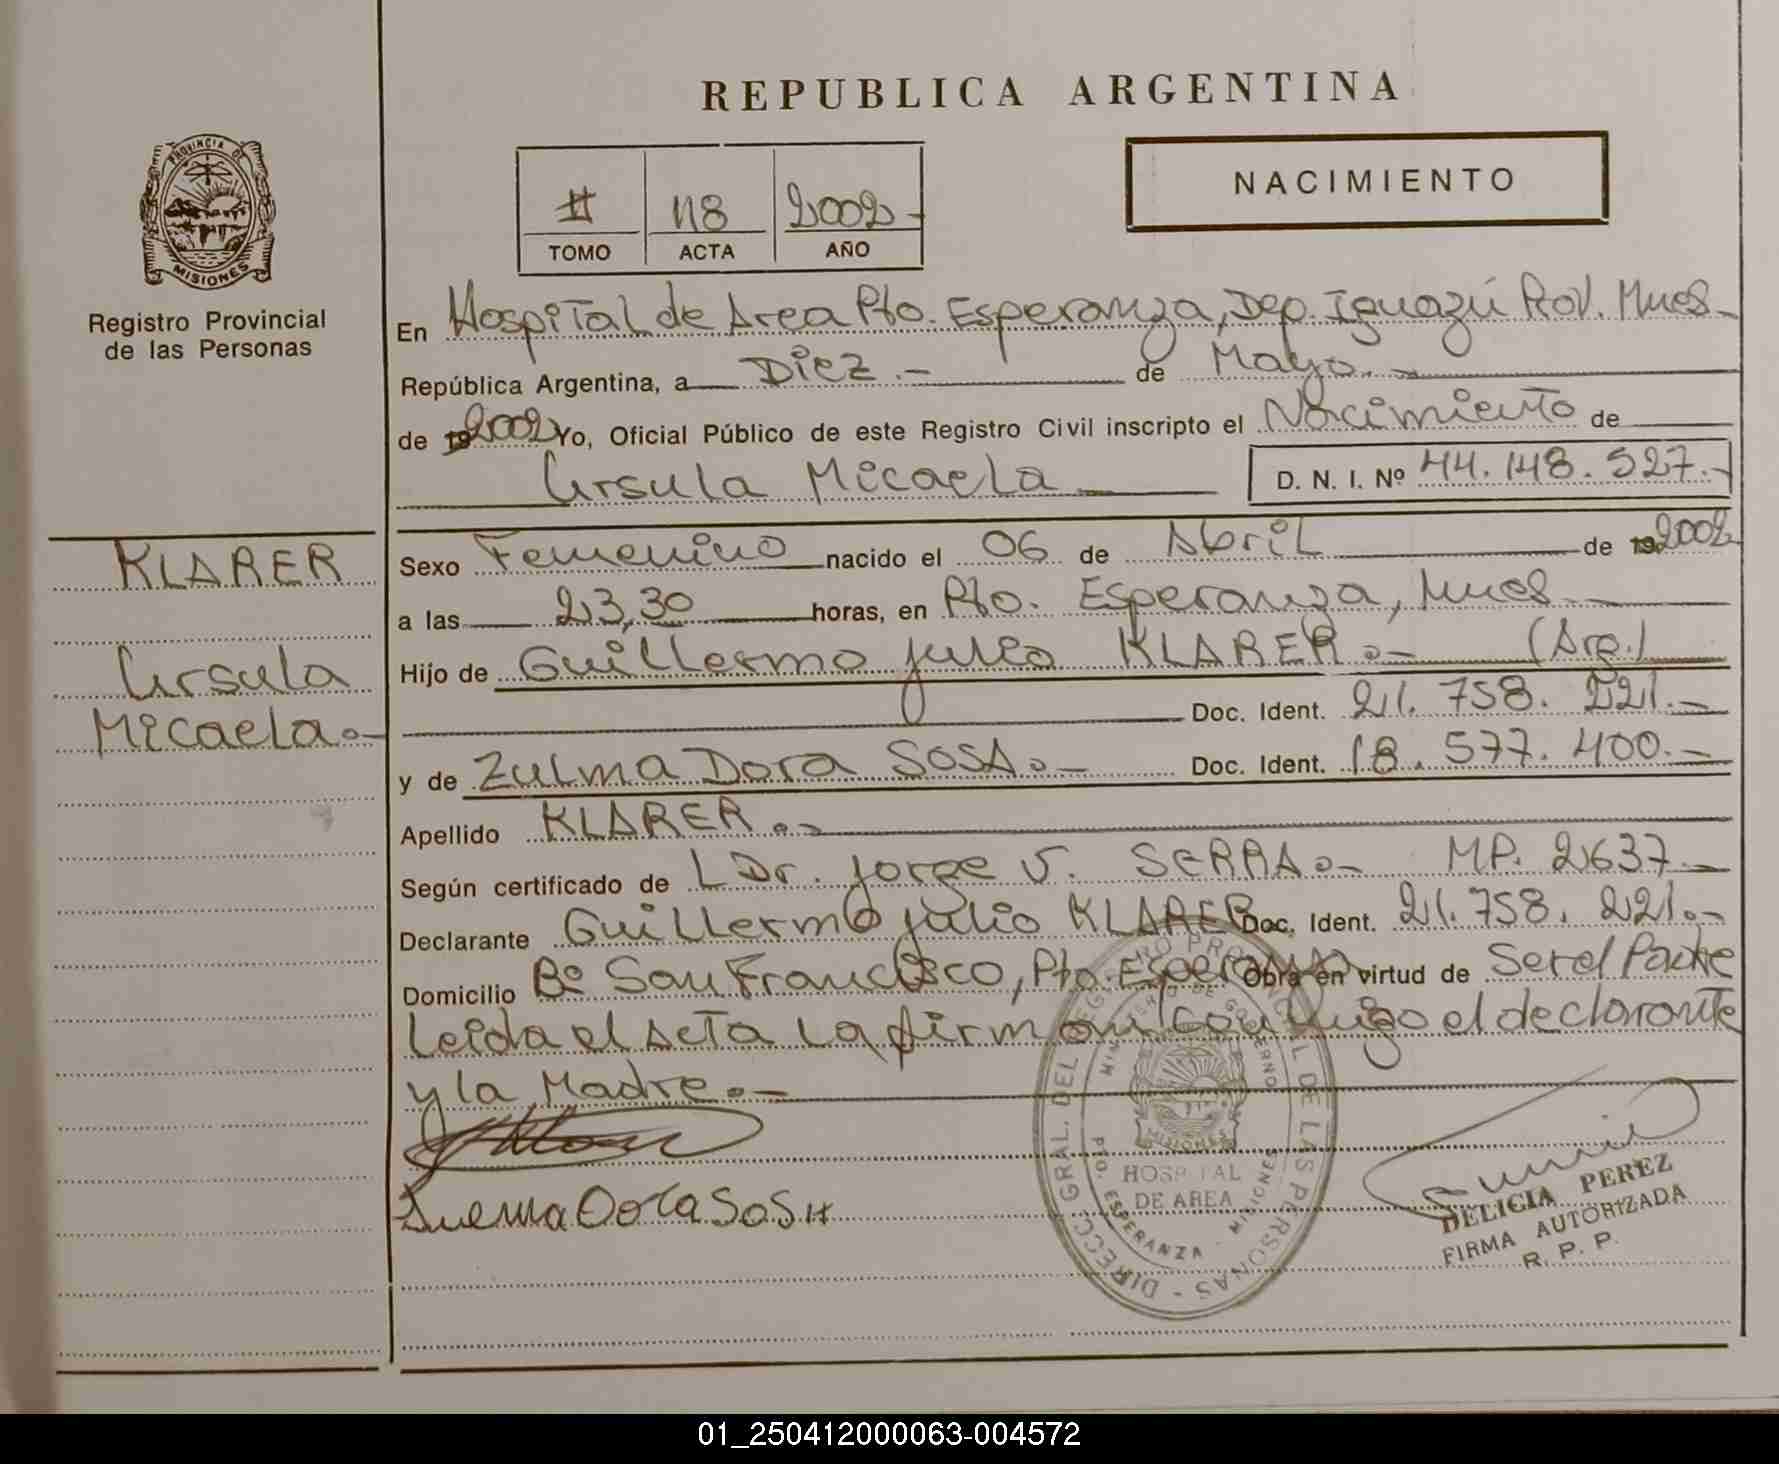 REPUBLICA ARGENTINA
NACIMIENTO
PROVINCIA DE
MISIONES
Registro Provincial
de las Personas
118 2002.-
TOMO ACTA AÑO
En Hospital de Area Pto. Esperanza, Dep. Iguazú Prov. Mnes.-
República Argentina, a Diez.- de Mayo.-
de 192002 Yo, Oficial Público de este Registro Civil inscripto el Nacimiento de
Ursula Micaela
D. N. I. Nº 44.148.527.-
KLARER
Ursula
Micaela.-
Sexo Femenino nacido el 06 de Abril de 192002
a las 23,30 horas, en Pto. Esperanza, Mnes
Hijo de Guillermo Julio KLARER.- (Arg.)
Doc. Ident. 21.758.221.-
y de Zulma Dora SOSA.- Doc. Ident. 18.577.400.-
Apellido KLARER.-
Según certificado de L Dr. Jorge V. SERRA.- MP. 2637.-
Declarante Guillermo Julio KLARER Doc. Ident. 21.758.221.-
Domicilio Bº San Francisco, Pto. Esperanza Obra en virtud de Ser el Padre
Leida el Acta la firman conmigo el declarante
y la Madre.-
DIRECC. GRAL. DEL REGISTRO PROVINCIAL DE LAS PERSONAS
MINISTERIO DE GOBIERNO
MISIONES
HOSPITAL
DE AREA
PTO. ESPERANZA - MISIONES
DELICIA PEREZ
FIRMA AUTORIZADA
R. P. P.
01_250412000063-004572